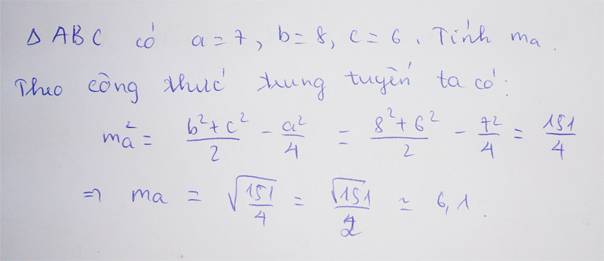 Δ ABC có a = 7, b = 8, c = 6. Tính ma.
Theo công thức trung tuyến ta có:
ma² = (b² + c²)/2 - a²/4 = (8² + 6²)/2 - 7²/4 = 151/4
⇒ ma = √(151/4) = √151/2 ≃ 6,1.